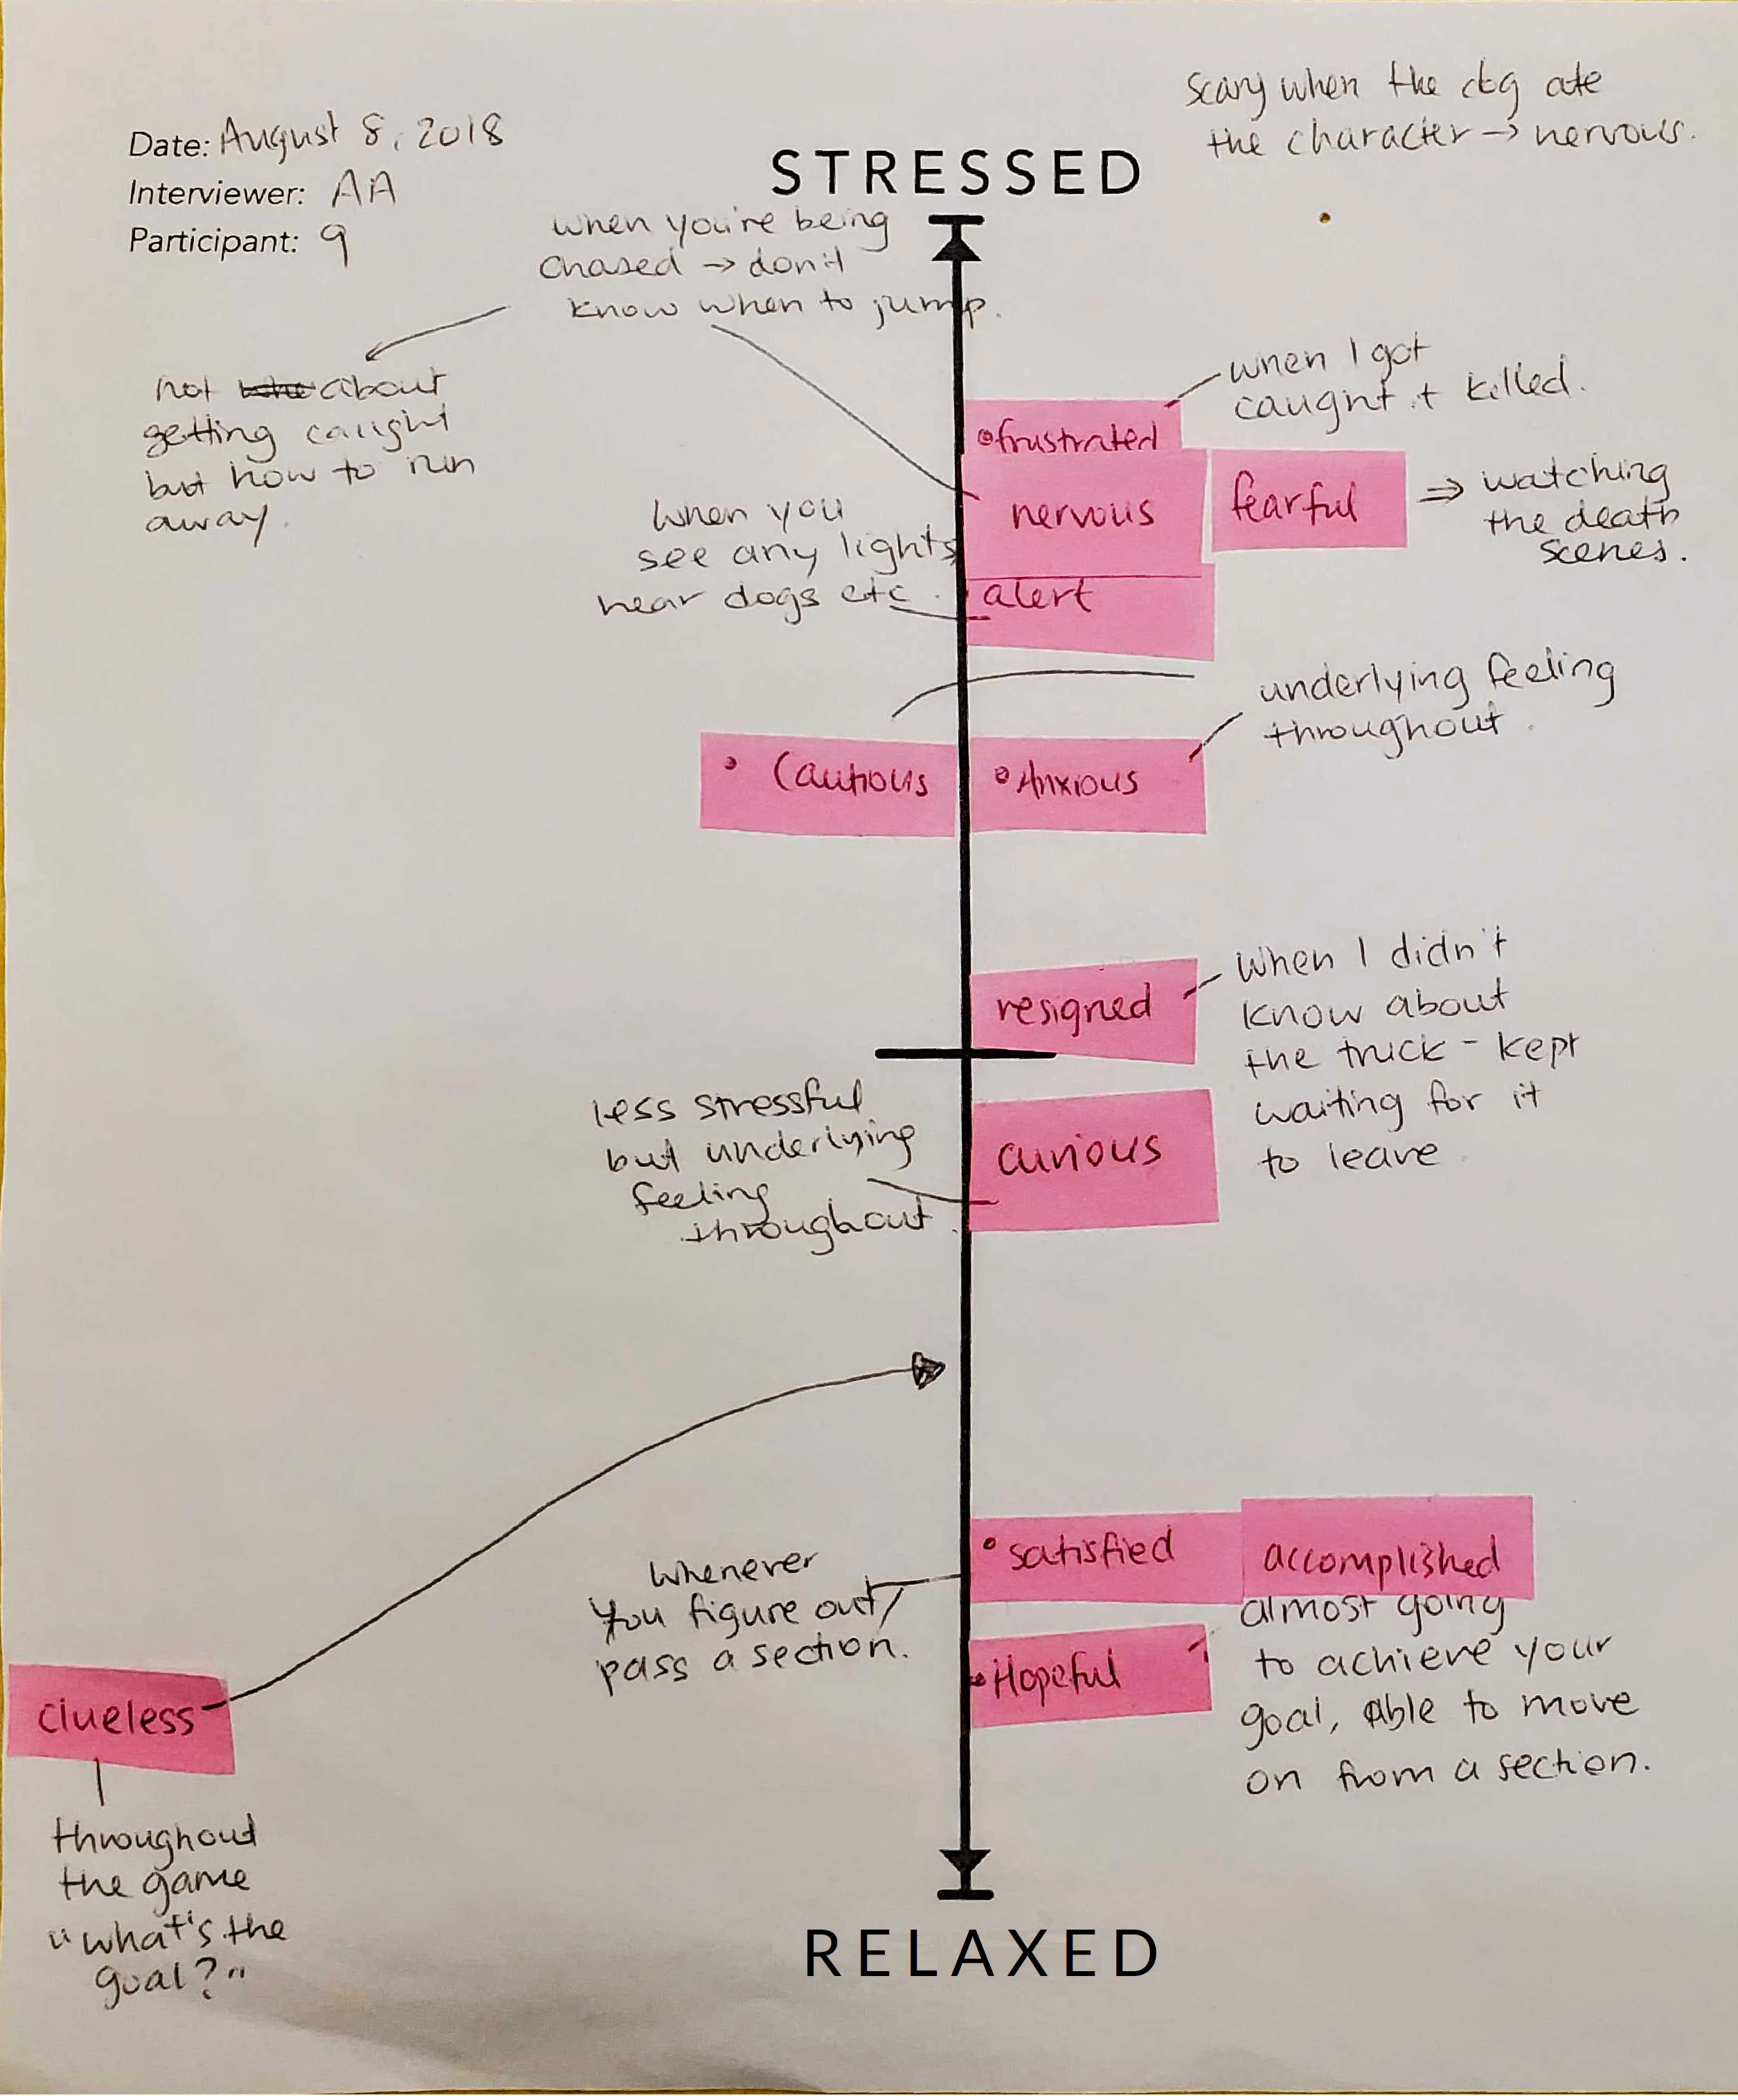 Date: August 8, 2018
Interviewer: AA
Participant: 9
scary when the dog ate
the character → nervous.
STRESSED
when you're being
chased → don't
know when to jump.
not about
getting caught
but how to run
away.
when I got
caught + killed.
•frustrated
nervous
fearful
⇒ watching
the death
scenes.
when you
see any lights
hear dogs etc.
alert
underlying feeling
throughout.
• Cautious
•Anxious
resigned
when I didn't
know about
the truck - kept
waiting for it
to leave.
less stressful
but underlying
feeling
throughout.
curious
•satisfied
accomplished
whenever
you figure out/
pass a section.
•Hopeful
almost going
to achieve your
goal, able to move
on from a section.
clueless
throughout
the game
"what's the
goal?"
RELAXED